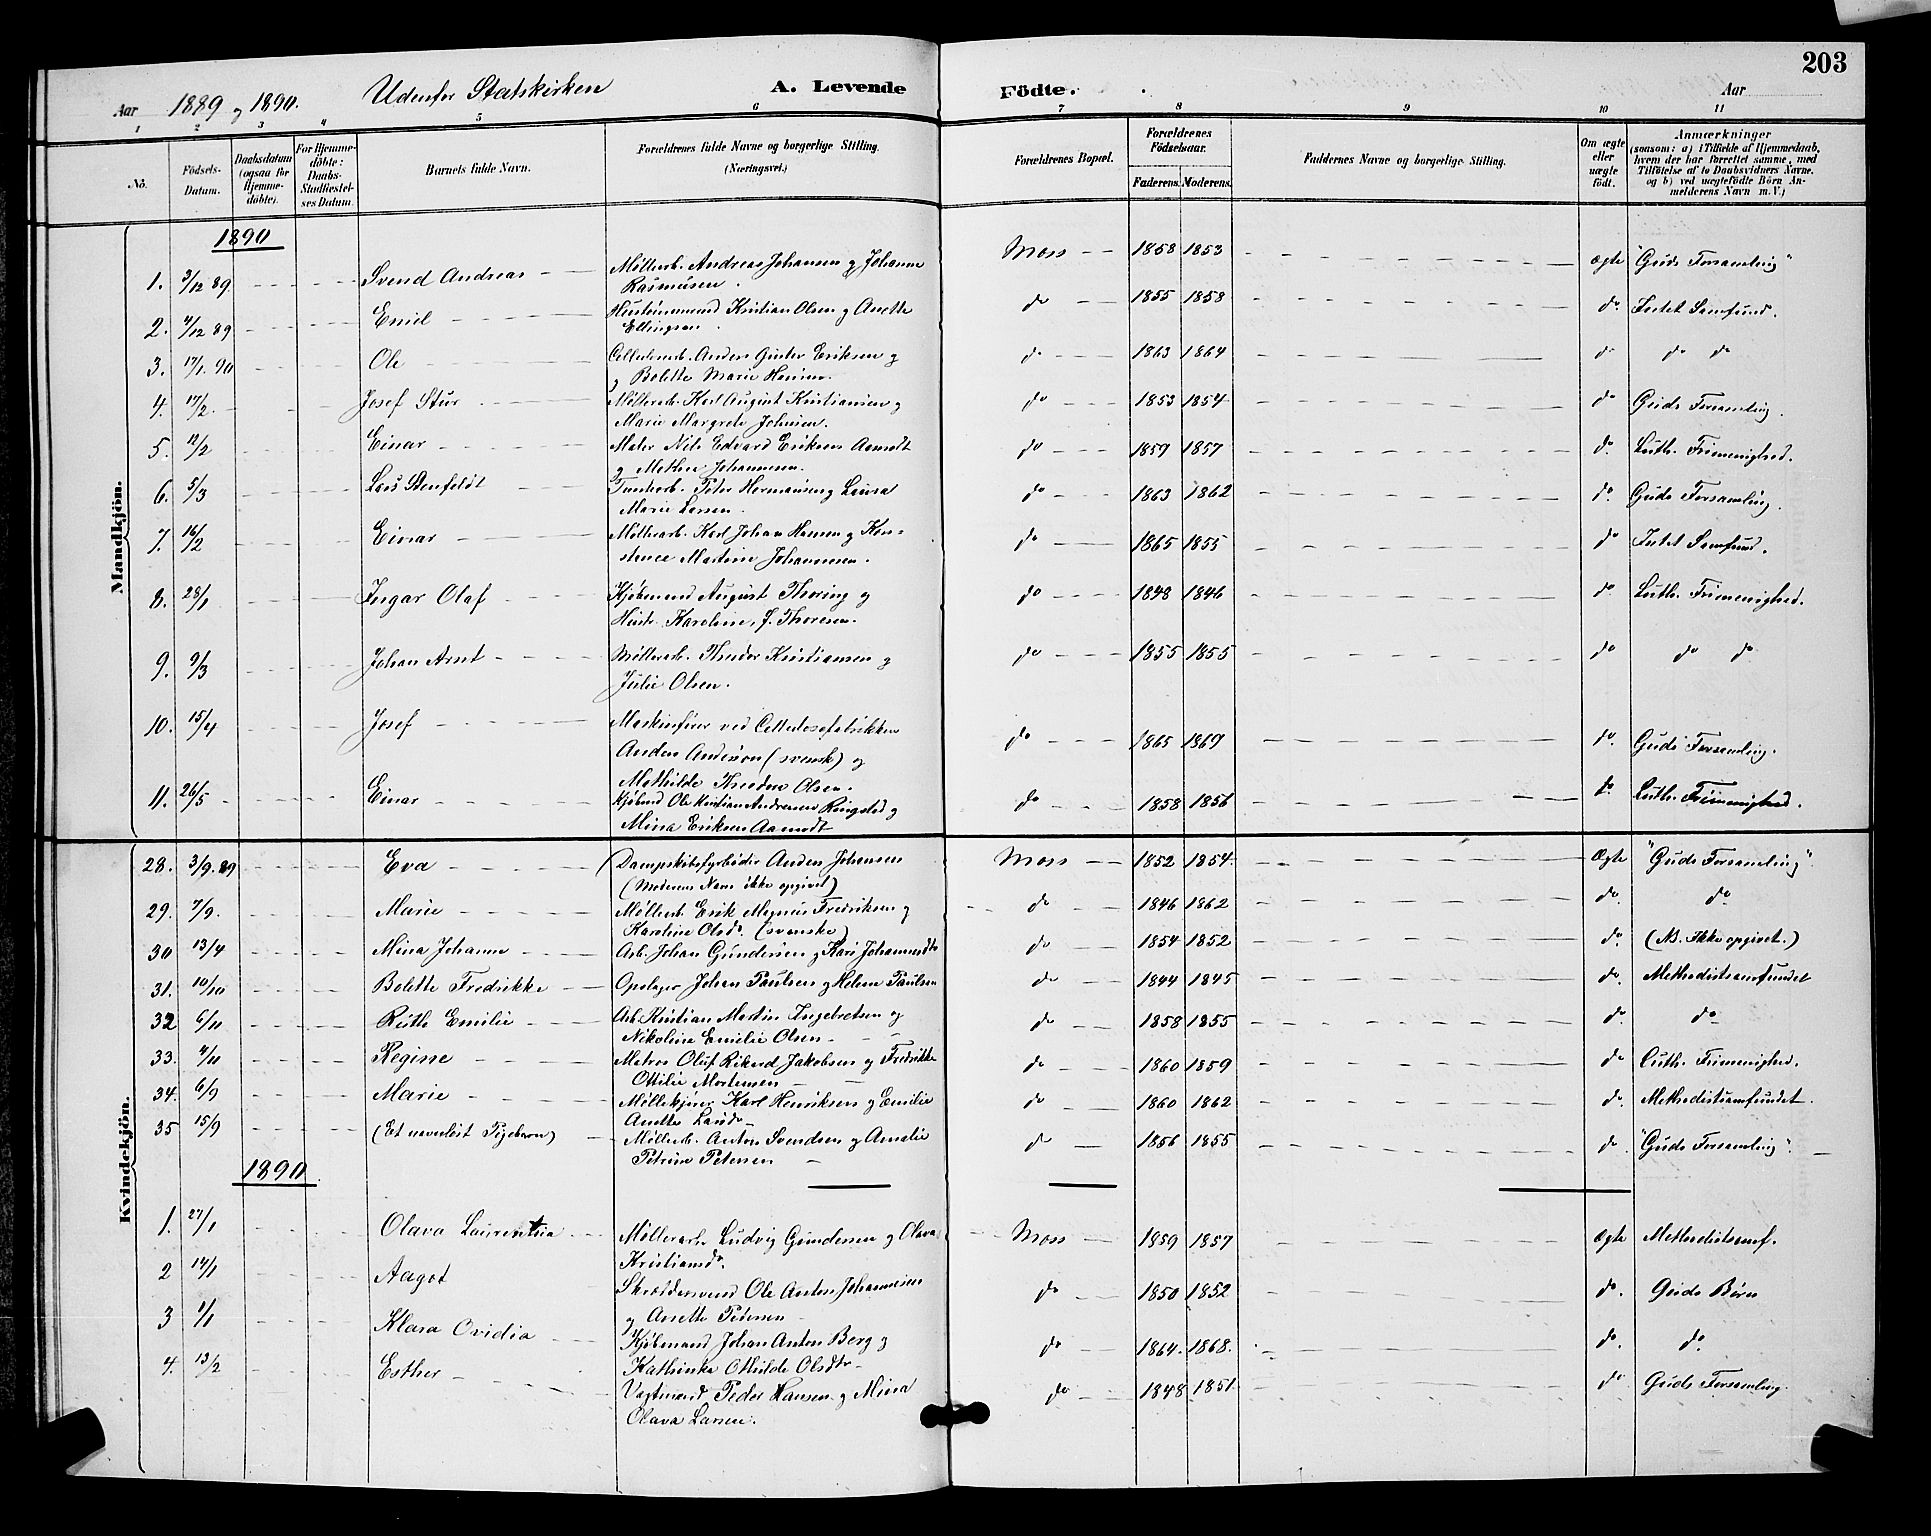 203
Aar 1889 og 1890. Udenfor Statskirken A. Levende Fødte. Aar
1 2 3 4 5 6 7 8 9 10 11
No. Fødsels-Datum. Daabsdatum (ogsaa for Hjemmedøbte). For Hjemmedøbte: Daabs-Stadfæstelses Datum. Barnets fulde Navn. Forældrenes fulde Navne og borgerlige Stilling. (Næringsvei.) Forældrenes Bopæl. Forældrenes Fødselsaar. Faderens. Moderens. Faddernes Navne og borgerlige Stilling. Om ægte eller uægte født. Anmærkninger (saasom: a) i Tilfælde af Hjemmedaab, hvem der har forrettet samme, med Tilføielse af to Daabsvidners Navne, og b) ved uægtefødte Børn Anmelderens Navn m.V.)
Mandkjön.
1890
1. 3/12 89. Svend Andreas Møllerarb. Andreas Johansen og Johanne Moss 1858 1853 ægte "Guds Forsamling"
Rasmusen.
2. 4/12 89 Emil Kristian Olsen og Anette do 1855 1858 do. Intet Samfund.
Ellingsen
3. 17/1. 90 Ole Anders Eriksen og do 1863 1864 do do do
g Bolette Marie
4. 17/2. Josef Stur Møllerarb. Karl August Kristiansen og do 1853 1854 do Guds Forsamling.
Marie Margrete Johnsen.
5. 12/2 Einar Maler Nils Edvard Eriksen Aamodt do 1859 1857 do. Luth. Frimenighed.
og Mathea Johannesen.
6. 5/3 Peter Hermansen og Laura do 1863 1862 do. Guds Forsamling.
Marie Larsen.
7. 16/2 Einar Møllerarb. Karl Johan Hansen og Kon- do 1865 1855 do Intet Samfund.
stance Martine Johannesen.
8. 28/1 Ingar Olaf Kjøbmand August Thoring og do 1848 1846 do Luth. Frimenighed.
Hustr. Karoline, f. Thoresen.
9. 9/3 Johan Arnt Møllerarb. Theodor Kristiansen og do 1855 1855 do do do
Julie Olsen.
10. 15/4 Josef Maskinfører ved Cellulosefabrikken do 1865 1869 do. Guds Forsamling.
Anders Anderson (svensk) og
Mathilde Theodora Olsen.
11. 26/5 Einar Kjøbmd Ole Kristian Andreasen Ringstad og do 1858 1856 do. Luth. Frimenighed.
Mina Eriksen Aamodt
Kvindekjön.
28. 3/9. 89 Eva Dampskibsfyrbøder Anders Johansen Moss 1852 1854 Ægte "Guds Forsamling".
(Moderens Navn ikke opgivet)
29. 7/9. Marie Møllerarb. Erik Magnus Fredriksen og do 1846 1862 do. do
Karoline Olsd. (svenske)
30 13/4 Mina Johanne Arb. Johan Gundersen og Kari Johannesdtr do 1854 1852 do. (NB. Ikke opgivet.)
31. 10/10 Bolette Fredrikke Opslager Johan Paulsen og Helene Paulsen do 1844 1845 do. Methodistsamfundet
32 6/11 Ruth Emilie Arb. Kristian Martin Ingebretsen og do 1858 1855 do. do
Nikoline Emilie Olsen
33. 4/11 Regine Matros Oluf Rikard Jakobsen og Fredrikke do 1860 1859 do Luth. Frimenighed.
Ottilie Mortensen
34. 6/9 Marie Møllekjører Karl Henriksen og Emilie do 1860 1862 do. Methodistsamfundet.
Anette
35 15/9 (Et navnløst Pigebarn) Møllerarb. Anton Svendsen og Amalie do 1856 1855 do "Guds Forsamling".
Petrine Petersen
1890
1. 27/1 Olava Laurentia Møllerarb. Ludvig Gundersen og Olava Moss 1859 1857 Ægte Methodistsamf.
Kristiansd.
2 14/1 Aagot Skræddersvend Ole Anton Johannesen do 1850 1852 do. Guds Børn
og Anette Petersen
3 1/1 Klara Ovidia Kjøbmand Johan Anton Berg og do 1864. 1868. do. do.
Kathinka Othilde Olsdtr
4. 13/2 Esther Vagtmand Peder Hansen og Mina do 1848 1851 do Guds Forsamling.
Olava Larsen.